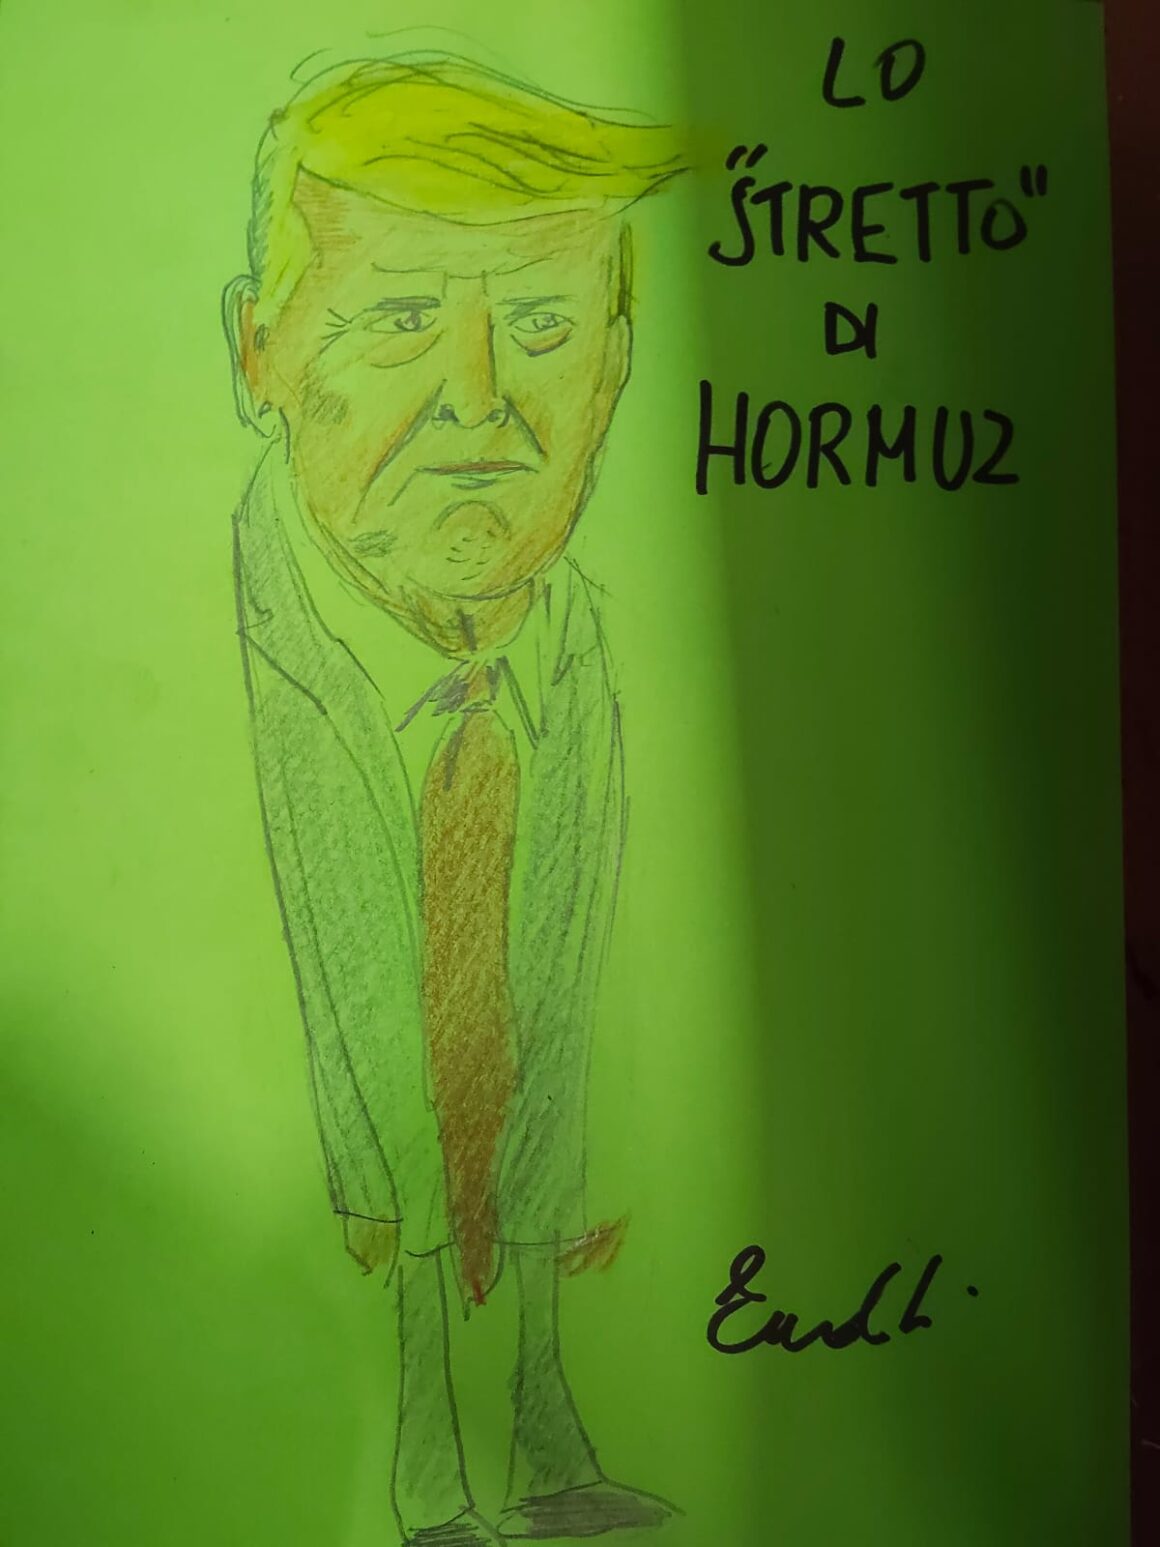 LO
"STRETTO"
DI
HORMUZ